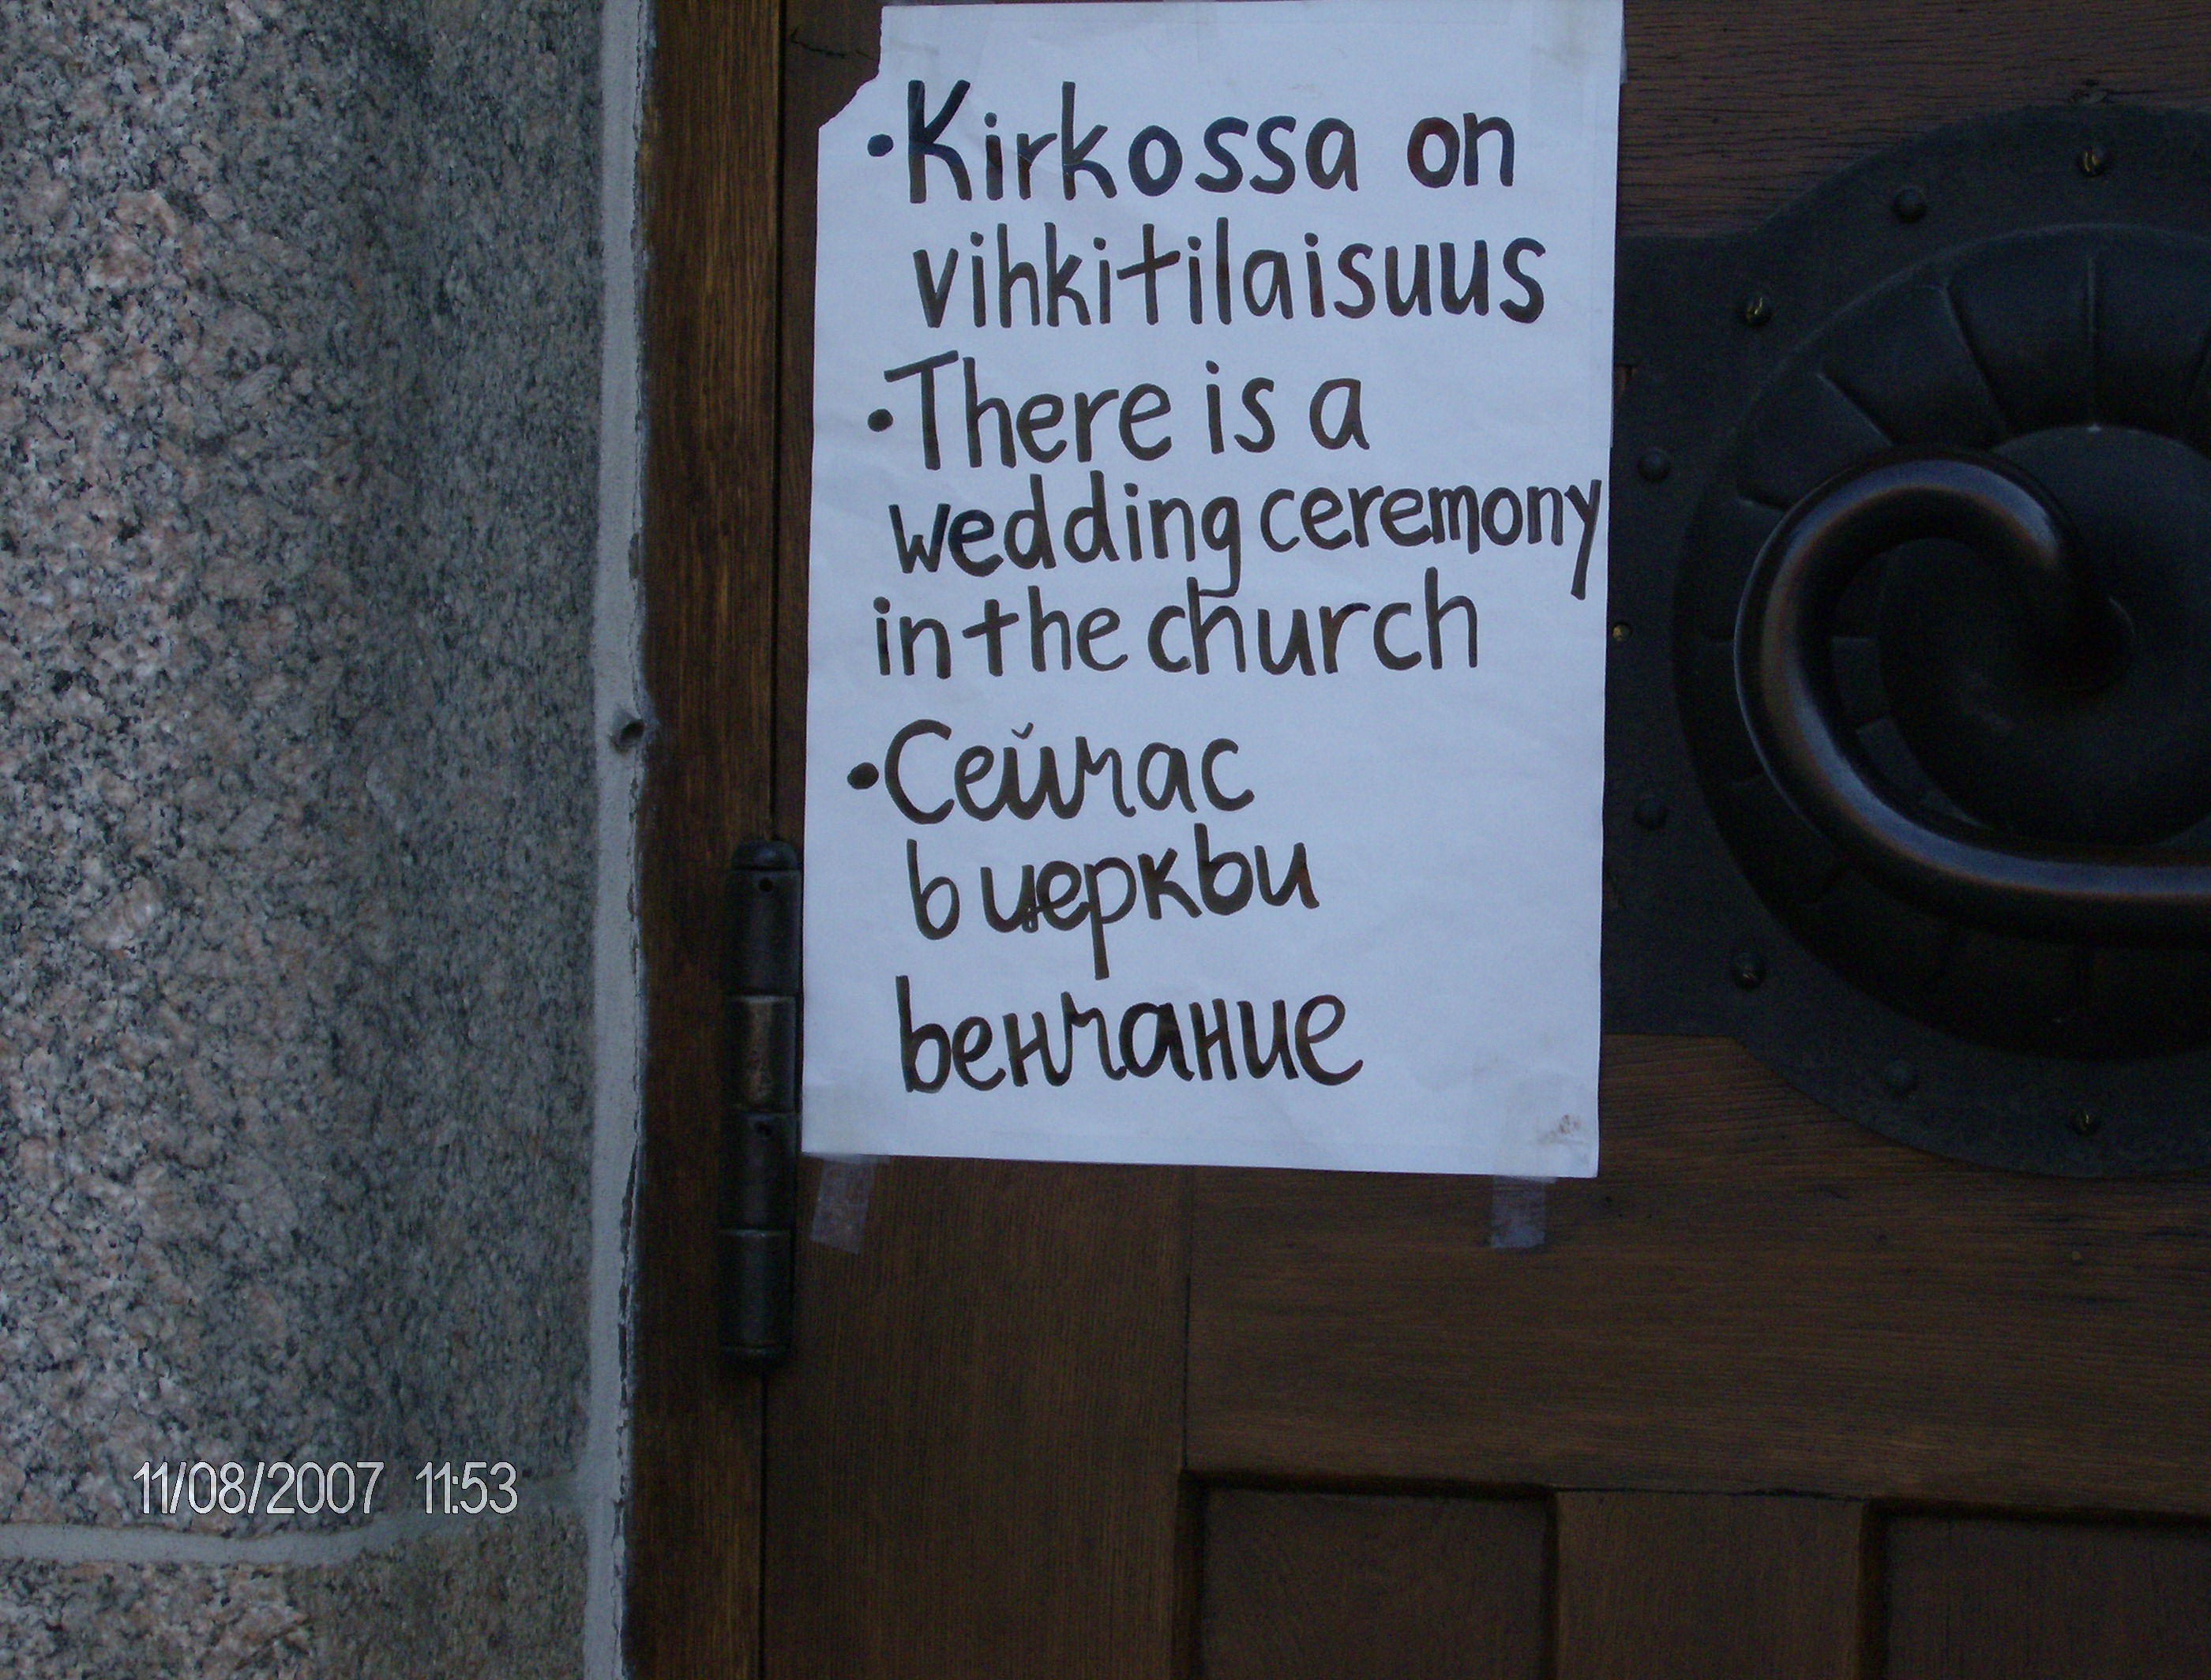 •Kirkossa on
vihkitilaisuus
•There is a
wedding ceremony
in the church
•Сейчас
в церкви
венчание
11/08/2007 11:53